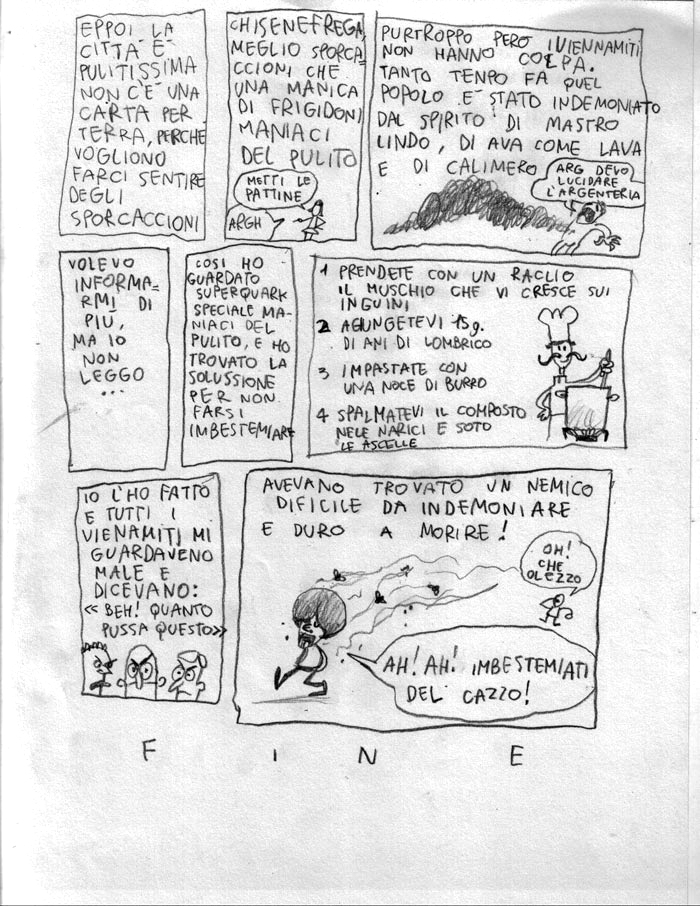 EPPOI LA
CITTÀ È
PULITISSIMA
NON C'È UNA
CARTA PER
TERRA, PERCHE
VOGLIONO
FARCI SENTIRE
DEGLI
SPORCACCIONI
CHISENEFREGA,
MEGLIO SPORCA=
CCIONI CHE
UNA MANICA
DI FRIGIDONI
MANIACI
DEL PULITO
METTI LE
PATTINE
ARGH
PURTROPPO PERÒ I VIENNAMITI
NON HANNO COLPA.
TANTO TENPO FA QUEL
POPOLO È STATO INDEMONIATO
DAL SPIRITO DI MASTRO
LINDO, DI AVA COME LAVA
E DI CALIMERO
ARG DEVO
LUCIDARE
L'ARGENTERIA
VOLEVO
INFORMA=
RMI DI
PIÙ,
MA IO
NON
LEGGO
...
COSI HO
GUARDATO
SUPERQUARK
SPECIALE MA-
NIACI DEL
PULITO, E HO
TROVATO LA
SOLUSSIONE
PER NON
FARSI
IMBESTEMIARE
1 PRENDETE CON UN RAGLIO
IL MUSCHIO CHE VI CRESCE SUI
INGUINI
2 AGIUNGETEVI 15 g.
DI ANI DI LOMBRICO
3 IMPASTATE CON
UNA NOCE DI BURRO
4 SPALMATEVI IL COMPOSTO
NELE NARICI E SOTO
LE ASCELLE
IO L'HO FATTO
E TUTTI I
VIENAMITI MI
GUARDAVENO
MALE E
DICEVANO:
«BEH! QUANTO
PUSSA QUESTO»
AVEVANO TROVATO UN NEMICO
DIFICILE DA INDEMONIARE
E DURO A MORIRE!
OH!
CHE
OLEZZO
AH! AH! IMBESTEMIATI
DEL CAZZO!
F I N E